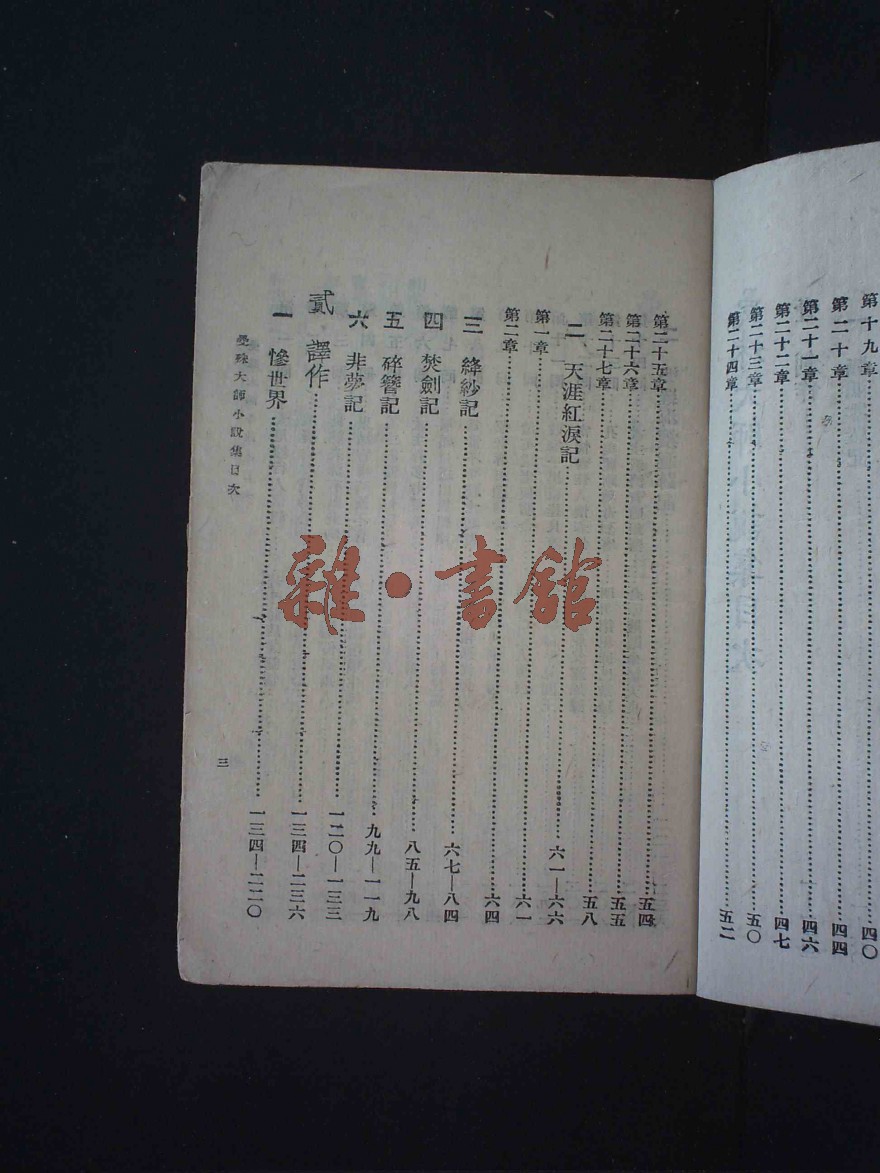 第十九章 四〇
第二十章 四四
第二十一章 四六
第二十二章 四七
第二十三章 五〇
第二十四章 五二
第二十五章 五四
第二十六章 五五
第二十七章 五八
二 天涯紅淚記 六一—六六
第一章 六一
第二章 六四
三 絳紗記 六七—八四
四 焚劍記 八五—九八
五 碎簪記 九九—一一九
六 非夢記 一二〇—一三三
貳 譯作 一三四—二三六
一 慘世界 一三四—二二〇
曼殊大師小說集目次
三
雜·書館